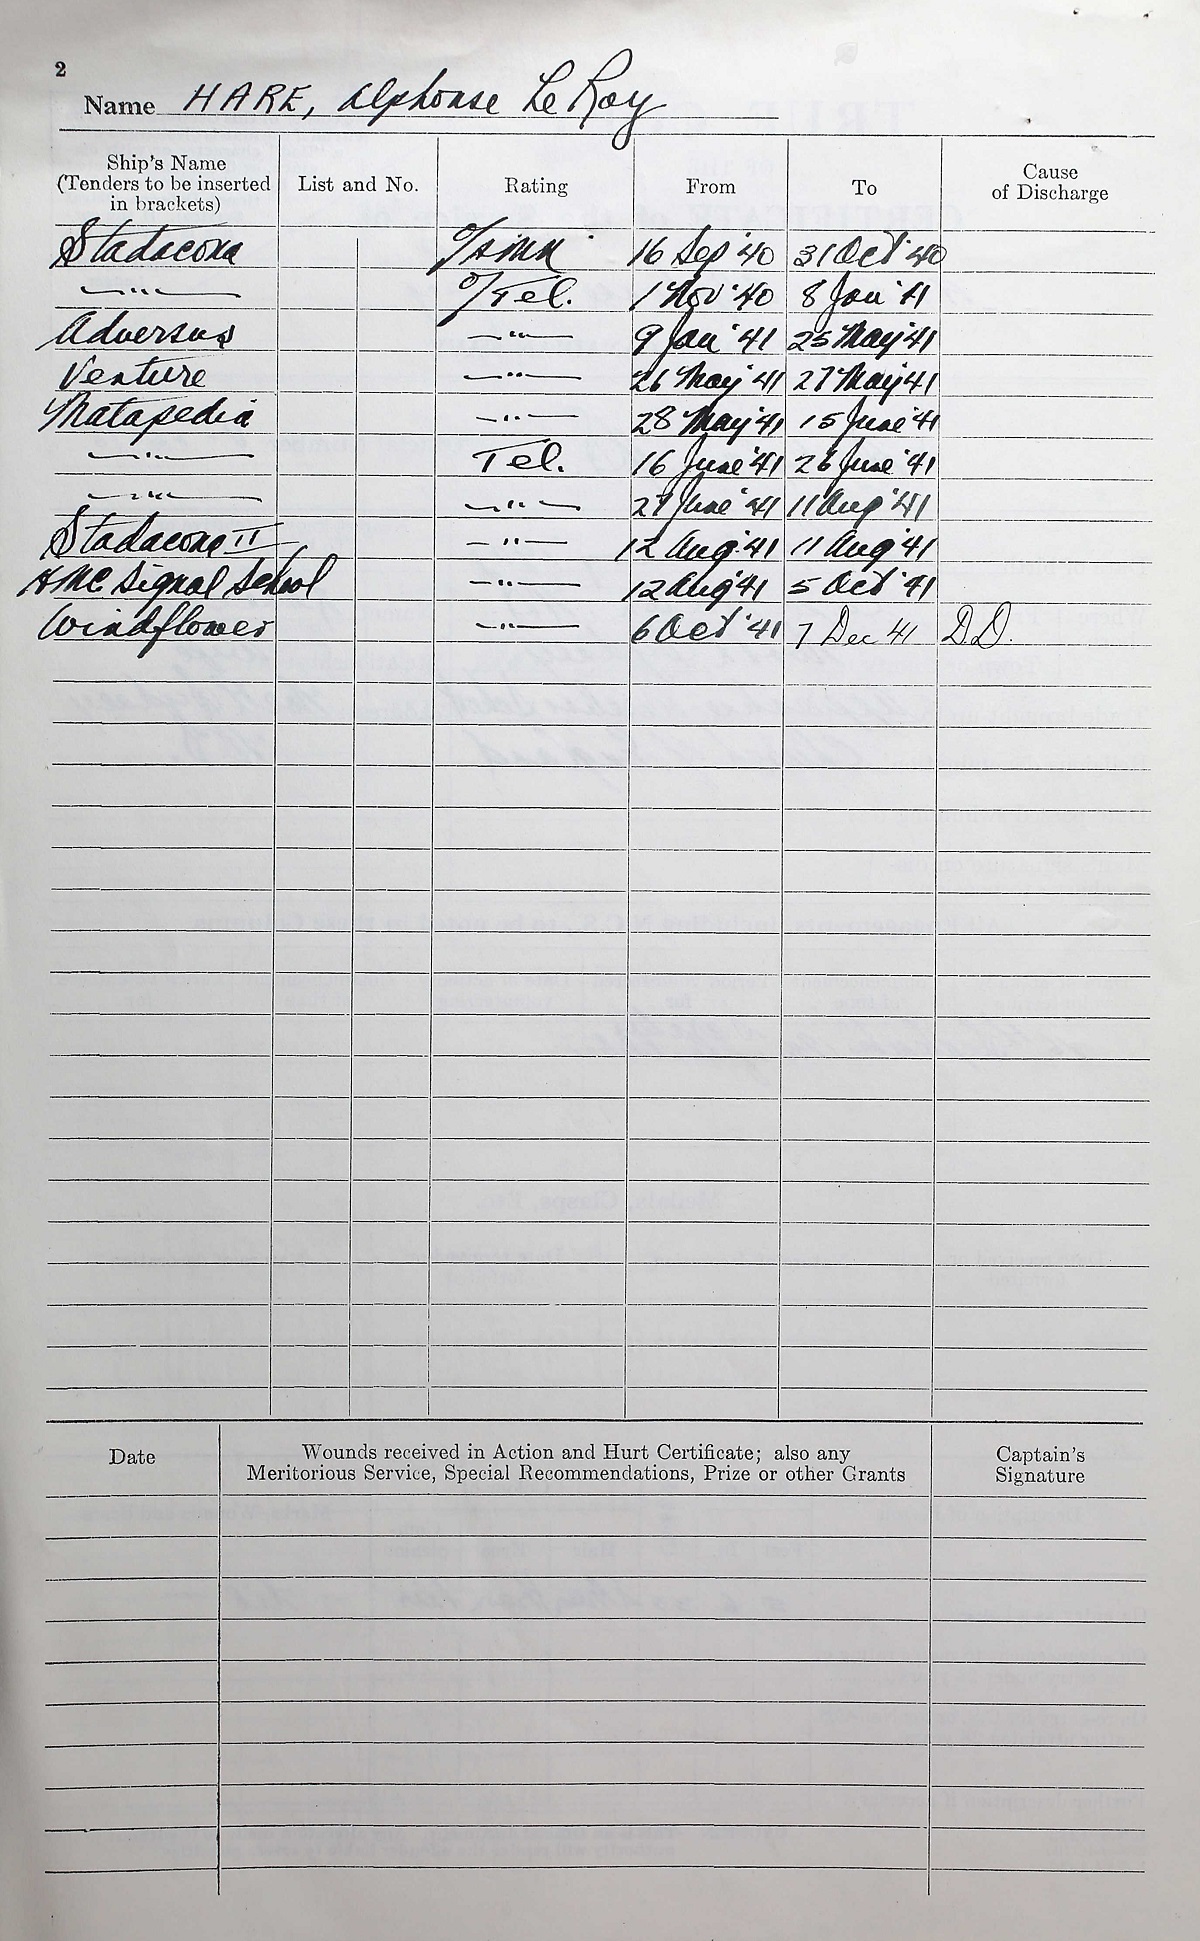 2
Name HARE, Alphonse Le Roy
Ship's Name
(Tenders to be inserted
in brackets)
List and No.
Rating
From
To
Cause
of Discharge
Stadacona 16 Sep '40 31 Oct '40
—"— O/Tel. 1 Nov '40 8 Jan '41
Adversus —"— 9 Jan '41 25 May '41
Venture —"— 26 May '41 27 May '41
Matapedia —"— 28 May '41 15 June '41
—"— Tel. 16 June '41 26 June '41
—"— —"— 27 June '41 11 Aug '41
Stadacona II —"— 12 Aug '41 11 Aug '41
HMC Signal School —"— 12 Aug '41 5 Oct '41
Windflower —"— 6 Oct '41 7 Dec 41 D.D.
Date
Wounds received in Action and Hurt Certificate; also any
Meritorious Service, Special Recommendations, Prize or other Grants
Captain's
Signature